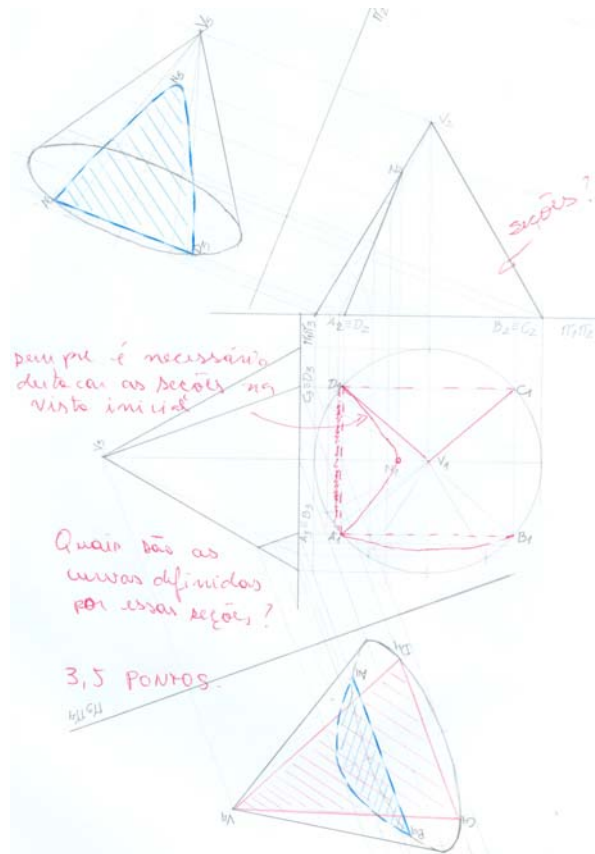 V5
π2
V2
N5
N2
seções?
A2≡D2
B2≡C2
π1π2
π1π3
sempre é necessário
destacar as seções na
vista inicial
C3≡D3
D1
C1
V3
N1
V1
A3≡B3
A1
B1
Quais são as
curvas definidas
por essas seções?
3,5 PONTOS.
π3π4
D4
A4
V4
B4
C4